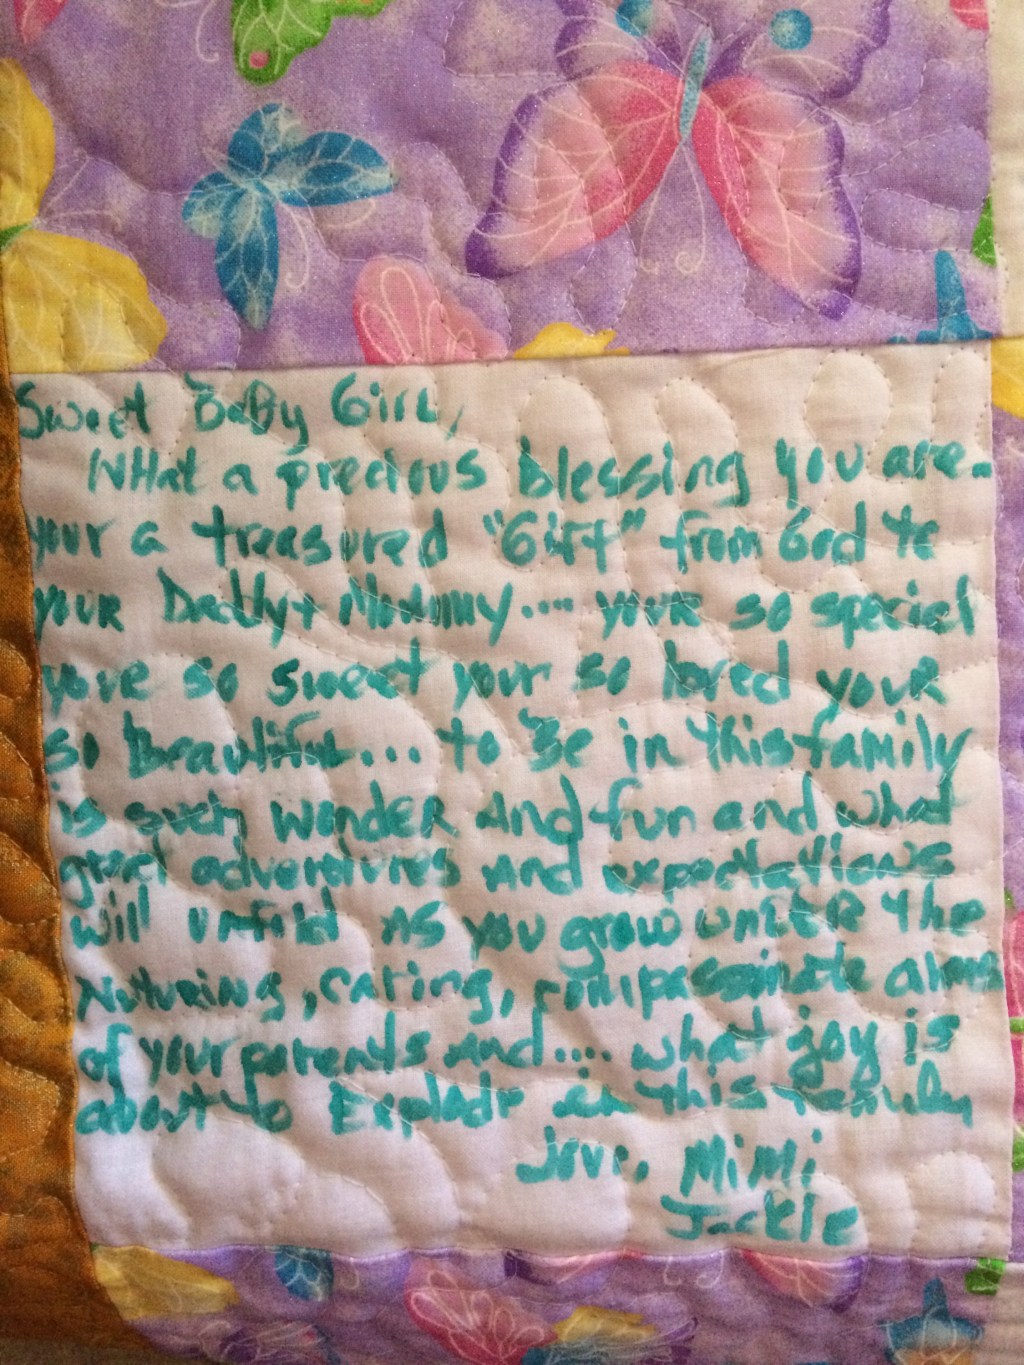 Sweet BaBy Girl,
WHat a precious blessing you are..
your a treasured "Gift" from God to
your Daddy + Mommy.... your so special
your so sweet your so loved your
so beautiful... to Be in this family
is such wonder And fun and what
great adventures And expectations
will unfold As you grow under the
Nuturing, caring, compassionate arms
of your parents And.... what joy is
about to Explode in this family
Love, MiMi
Jackie